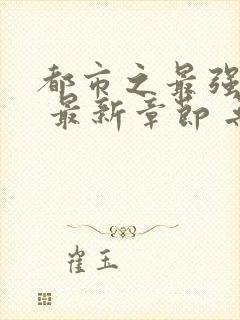 都市之最强
最新章節
崔玉